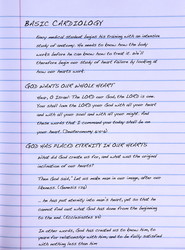 BASIC CARDIOLOGY
Every medical student begins his training with an intensive
study of anatomy. He needs to know how the body
works before he can know how to treat it. We'll
therefore begin our study of heart failure by looking at
how our hearts work.
GOD WANTS OUR WHOLE HEART
Hear, O Israel: The LORD our God, the LORD is one.
You shall love the LORD your God with all your heart
and with all your soul and with all your might. And
these words that I command you today shall be on
your heart. (Deuteronomy 6:4-6)
GOD HAS PLACED ETERNITY IN OUR HEARTS
What did God create us for, and what was the original
inclination of our hearts?
Then God said, "Let us make man in our image, after our
likeness. (Genesis 1:26)
... he has put eternity into man's heart, yet so that he
cannot find out what God has done from the beginning
to the end. (Ecclesiastes 3:11)
In other words, God has created us to know him, to
enjoy relationship with him, and to be fully satisfied
with nothing less than him